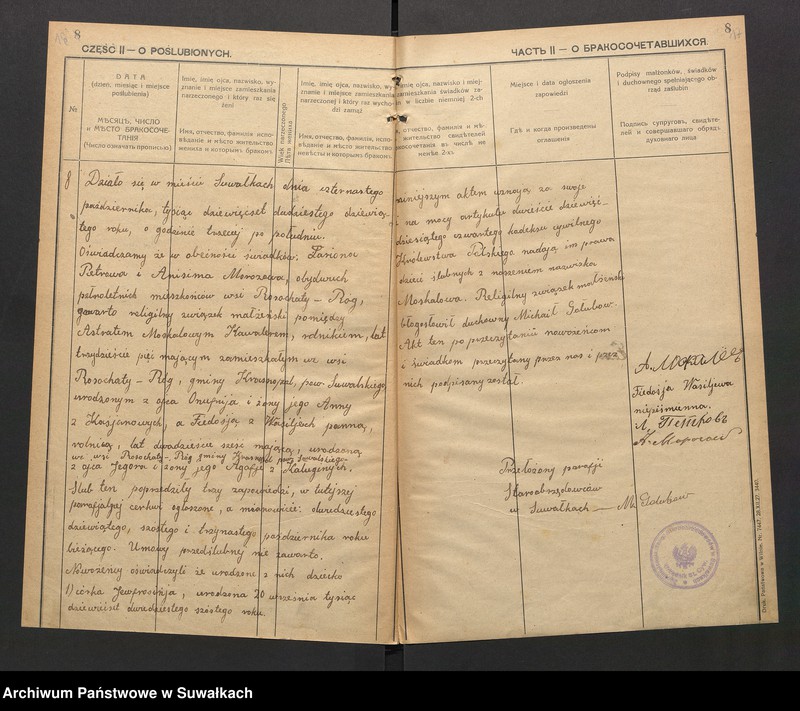 8
CZĘŚĆ II – O POŚLUBIONYCH.
№
DATA
(dzień, miesiąc i miejsce
poślubienia)
МѢСЯЦЪ, ЧИСЛО
и МѢСТО БРАКОСОЧЕ-
ТАНІЯ
(Число означать прописью)
Imię, imię ojca, nazwisko, wy-
znanie i miejsce zamieszkania
narzeczonego i który raz się
żeni
Имя, отчество, фамилія испо-
вѣданіе и мѣсто жительство
жениха и которымъ бракомъ
Wiek narzeczonego
Лѣта жениха
Imię, imię ojca, nazwisko, wy-
znanie i miejsce zamieszkania
narzeczonej i który raz wycho-
dzi zamąż
Имя, отчество, фамилія, испо-
вѣданіе и мѣсто жительство
невѣсты и которымъ бракомъ
8
Działo się w mieście Suwałkach dnia czternastego
października, tysiąc dziewięćset dwudziestego dziewią-
tego roku, o godzinie trzeciej po południu.
Oświadczamy że w obecności świadków: Łariona
Petrowa i Anisima Morozowa, obydwuch
pełnoletnich mieszkańców wsi Rosochaty-Róg,
zawarto religijny związek małżeński pomiędzy
Astratem Moskalowym Kawalerem, rolnikiem, lat
trzydzieście pięć mającym zamieszkałym we wsi
Rosochaty-Róg, gminy Krasnopol, pow. Suwalskiego,
urodzonym z ojca Onufrija i żony jego Anny
z Kasjanowych, a Fiedosją z Wasiljewych panną,
rolniczką, lat dwadzieście sześć mającą, urodzoną
we wsi Rosochaty-Róg gminy Krasnopol pow. Suwalskiego
z ojca Jegora i żony jego Agafji z Kaluginych.
Ślub ten poprzedziły trzy zapowiedzi, w tutejszej
parafjalnej cerkwi ogłoszone, a mianowicie: dwudziestego
dziewiątego, szóstego i trzynastego października roku
bieżącego. Umowy przedślubnej nie zawarto.
Nowożeńcy oświadczyli że urodzone z nich dziecko
1) córka Jewfrosinja, urodzona 20 września tysiąc
dziewięćset dwudziestego szóstego roku.
8
ЧАСТЬ II – О БРАКОСОЧЕТАВШИХСЯ.
Imię ojca, nazwisko i miej-
sce zamieszkania świadków za-
w liczbie niemniej 2-ch
отчество, фамилія и мѣ-
жительство свидѣтелей
бракосочетанія въ числѣ не
менѣе 2-хъ
Miejsce i data ogłoszenia
zapowiedzi
Гдѣ и когда произведены
оглашенія
Podpisy małżonków, świadków
i duchownego spełniającego ob-
rząd zaślubin
Подпись супруговъ, свидѣте-
лей и совершавшаго обрядъ
духовнаго лица
niniejszym aktem uznają za swoje
i na mocy artykułu dwieście dziewięć-
dziesiątego czwartego kodeksu cywilnego
Królewstwa Polskiego nadają im prawa
dzieci ślubnych z noszeniem nazwiska
Moskalowa. Religijny związek małżeński
błogosławił duchowny Michaił Gołubow.
Akt ten po przeczytaniu nowożeńcom
i świadkom przeczytany przez nas i przez
nich podpisany został.
А. Москалёв
Fiedosja Wasiljewa
niepiśmienna.
Л. Петровъ
А. Морозов
Przełożony parafji
Staroobrzędowców
w Suwałkach — M. Gołubow
Druk. Państwowa w Wilnie. Nr. 7447. 28.XII.27.
Archiwum Państwowe w Suwałkach